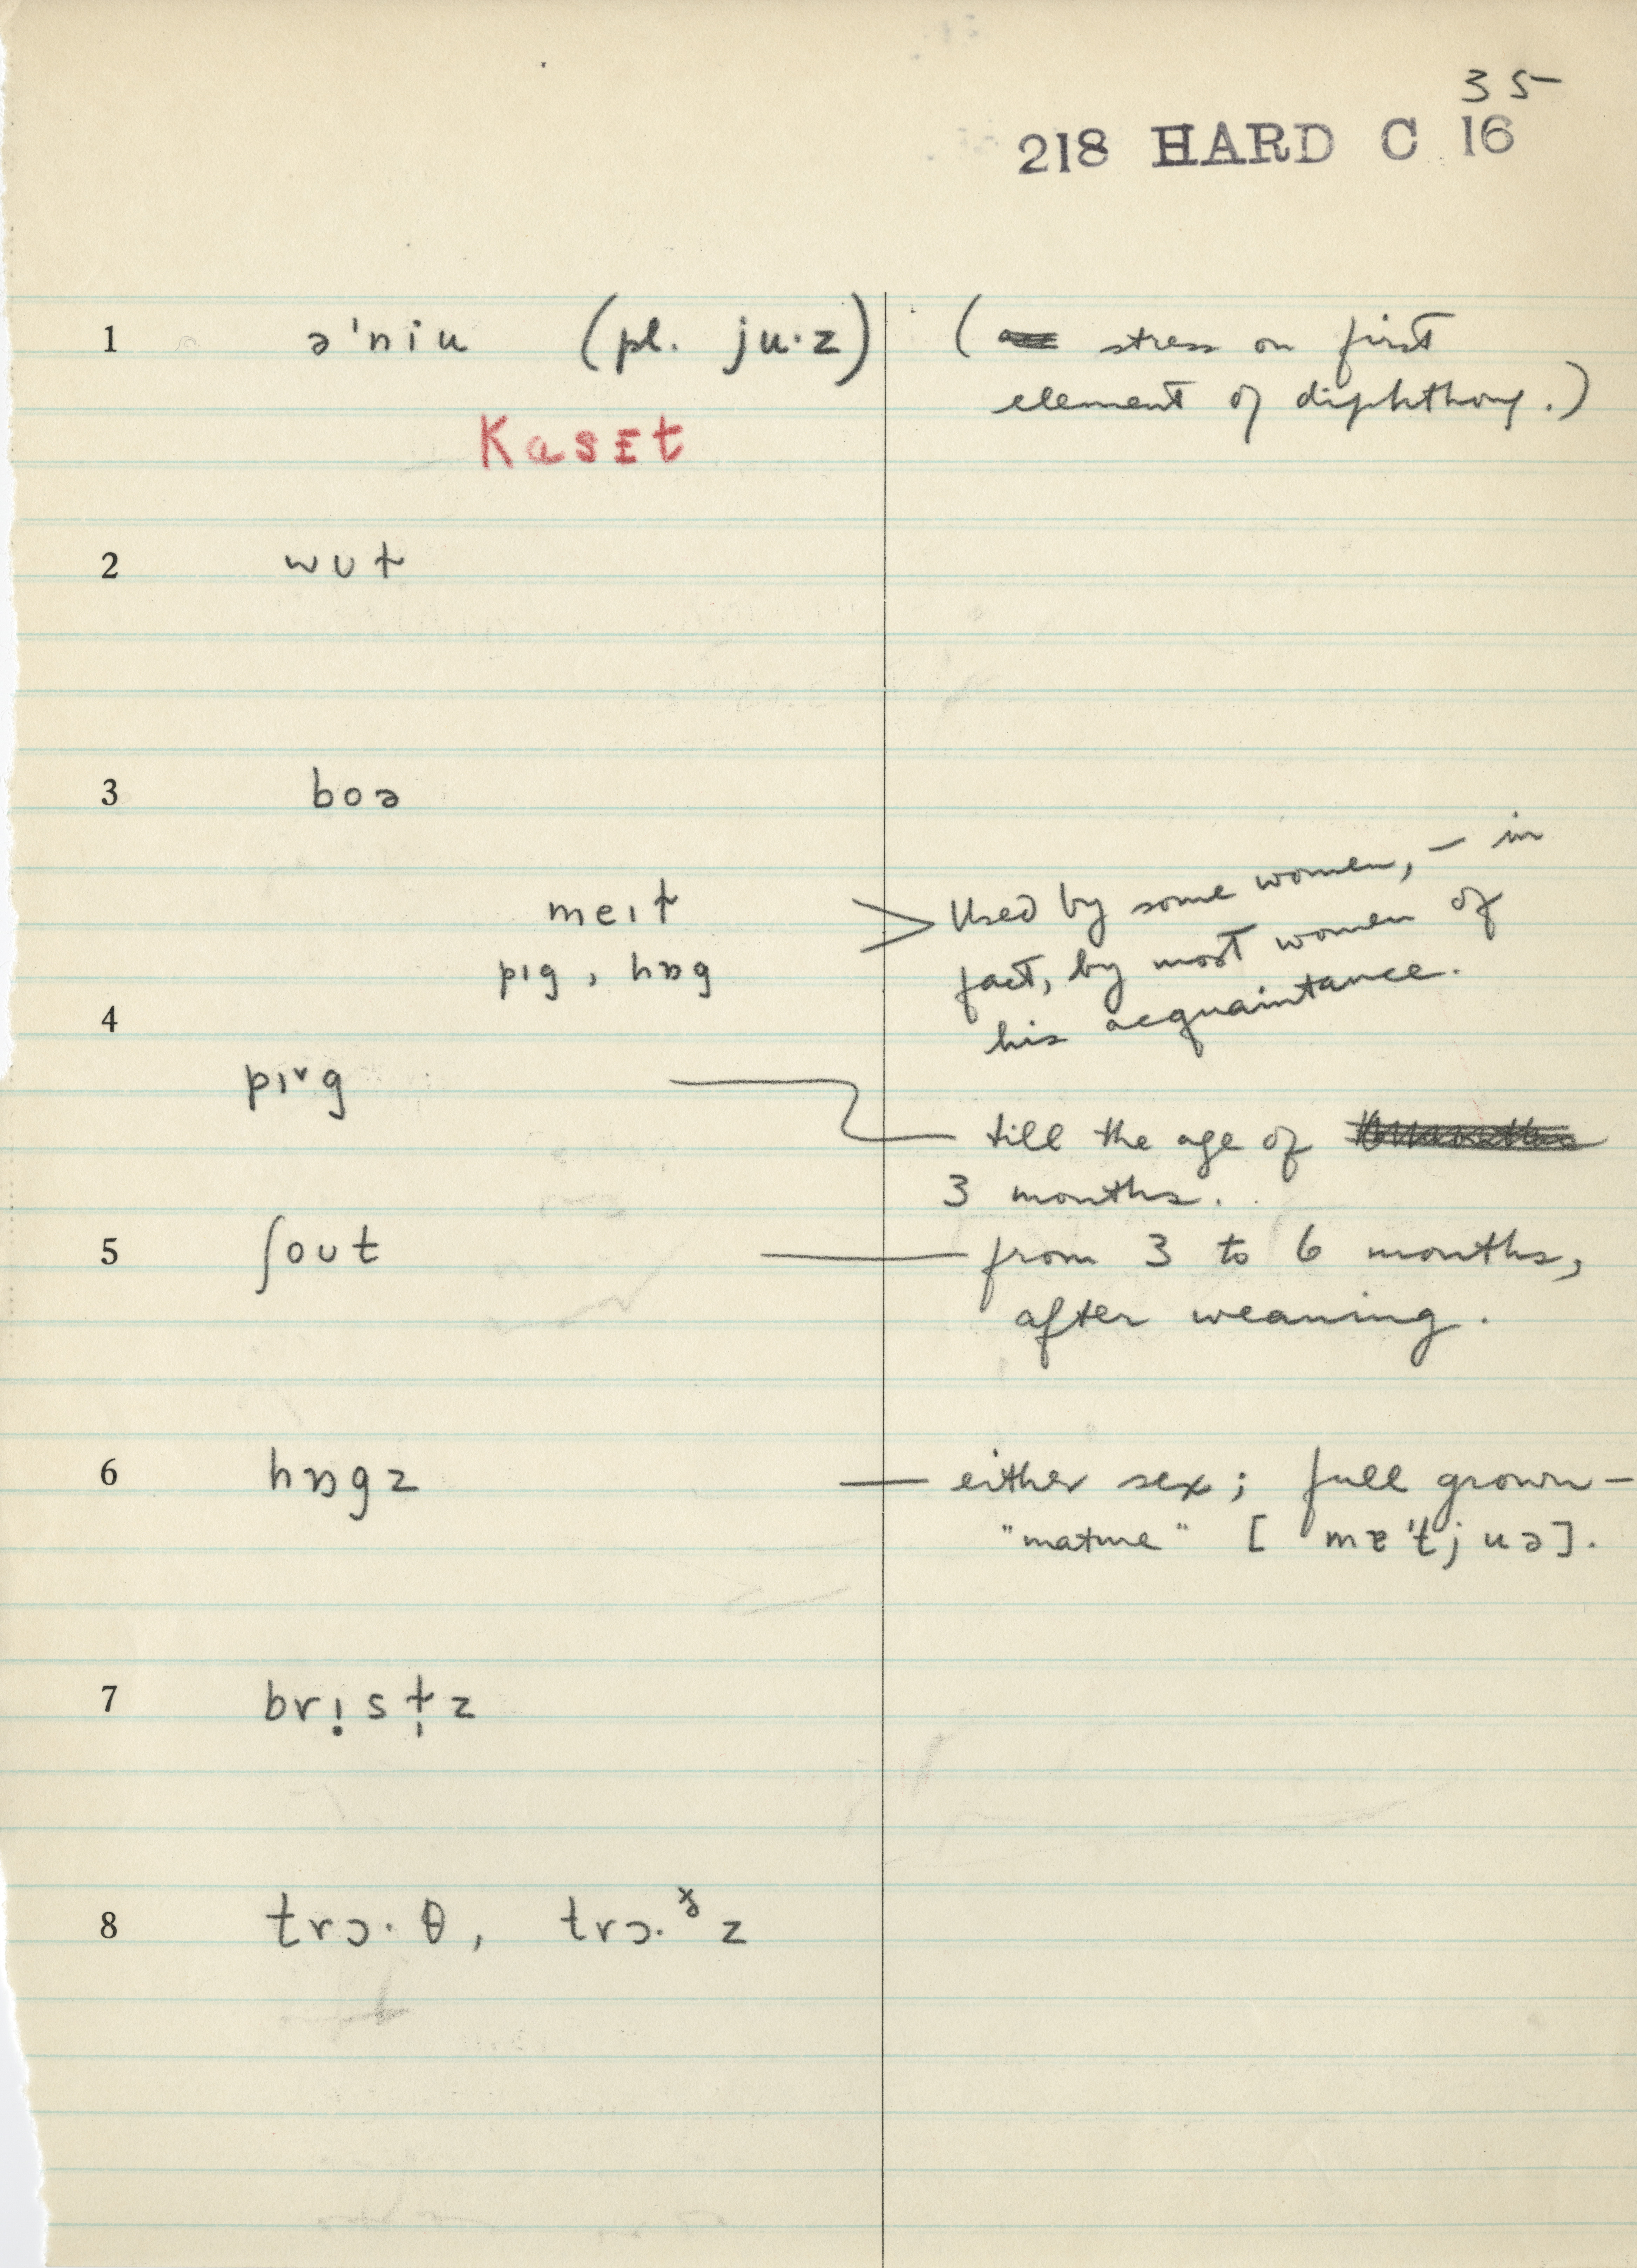 35
218 HARD C 16
1 ə'niu (pl. ju·z) ( stress on first
element of diphthong.)
KasEt
2 wʊt
3 boə
meɪt > Used by some women, – in
pɪg, hɒg fact, by most women of
4 his acquaintance.
pɪ˅g — till the age of
3 months.
5 ʃoʊt — from 3 to 6 months,
after weaning.
6 hɒgz — either sex; full grown –
"mature" [mɐ'tjuə].
7 brɪ̣st̩z
8 trɔ·θ, trɔ·ᶚz